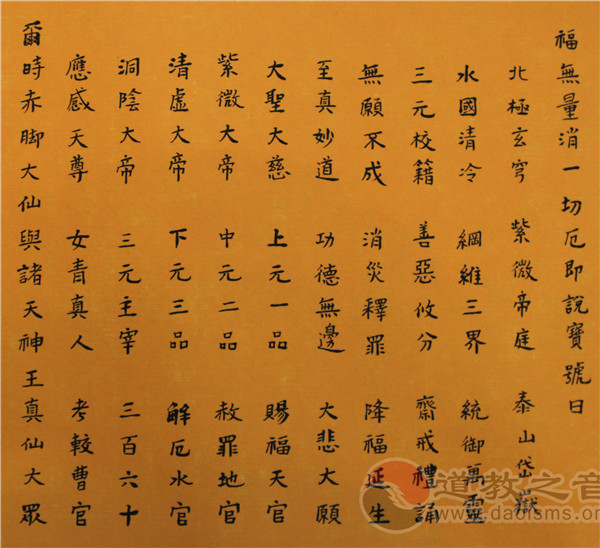 福無量消一切厄即說寶號曰
北極玄穹 紫微帝庭 泰山岱嶽
水國清冷 綱維三界 統御萬靈
三元校籍 善惡攸分 齋戒禮誦
無願不成 消災釋罪 降福延生
至真妙道 功德無邊 大悲大願
大聖大慈 上元一品 賜福天官
紫微大帝 中元二品 赦罪地官
清虛大帝 下元三品 解厄水官
洞陰大帝 三元主宰 三百六十
應感天尊 女青真人 考較曹官
爾時赤脚大仙與諸天神王真仙大眾
道教之音
www.daoisms.org